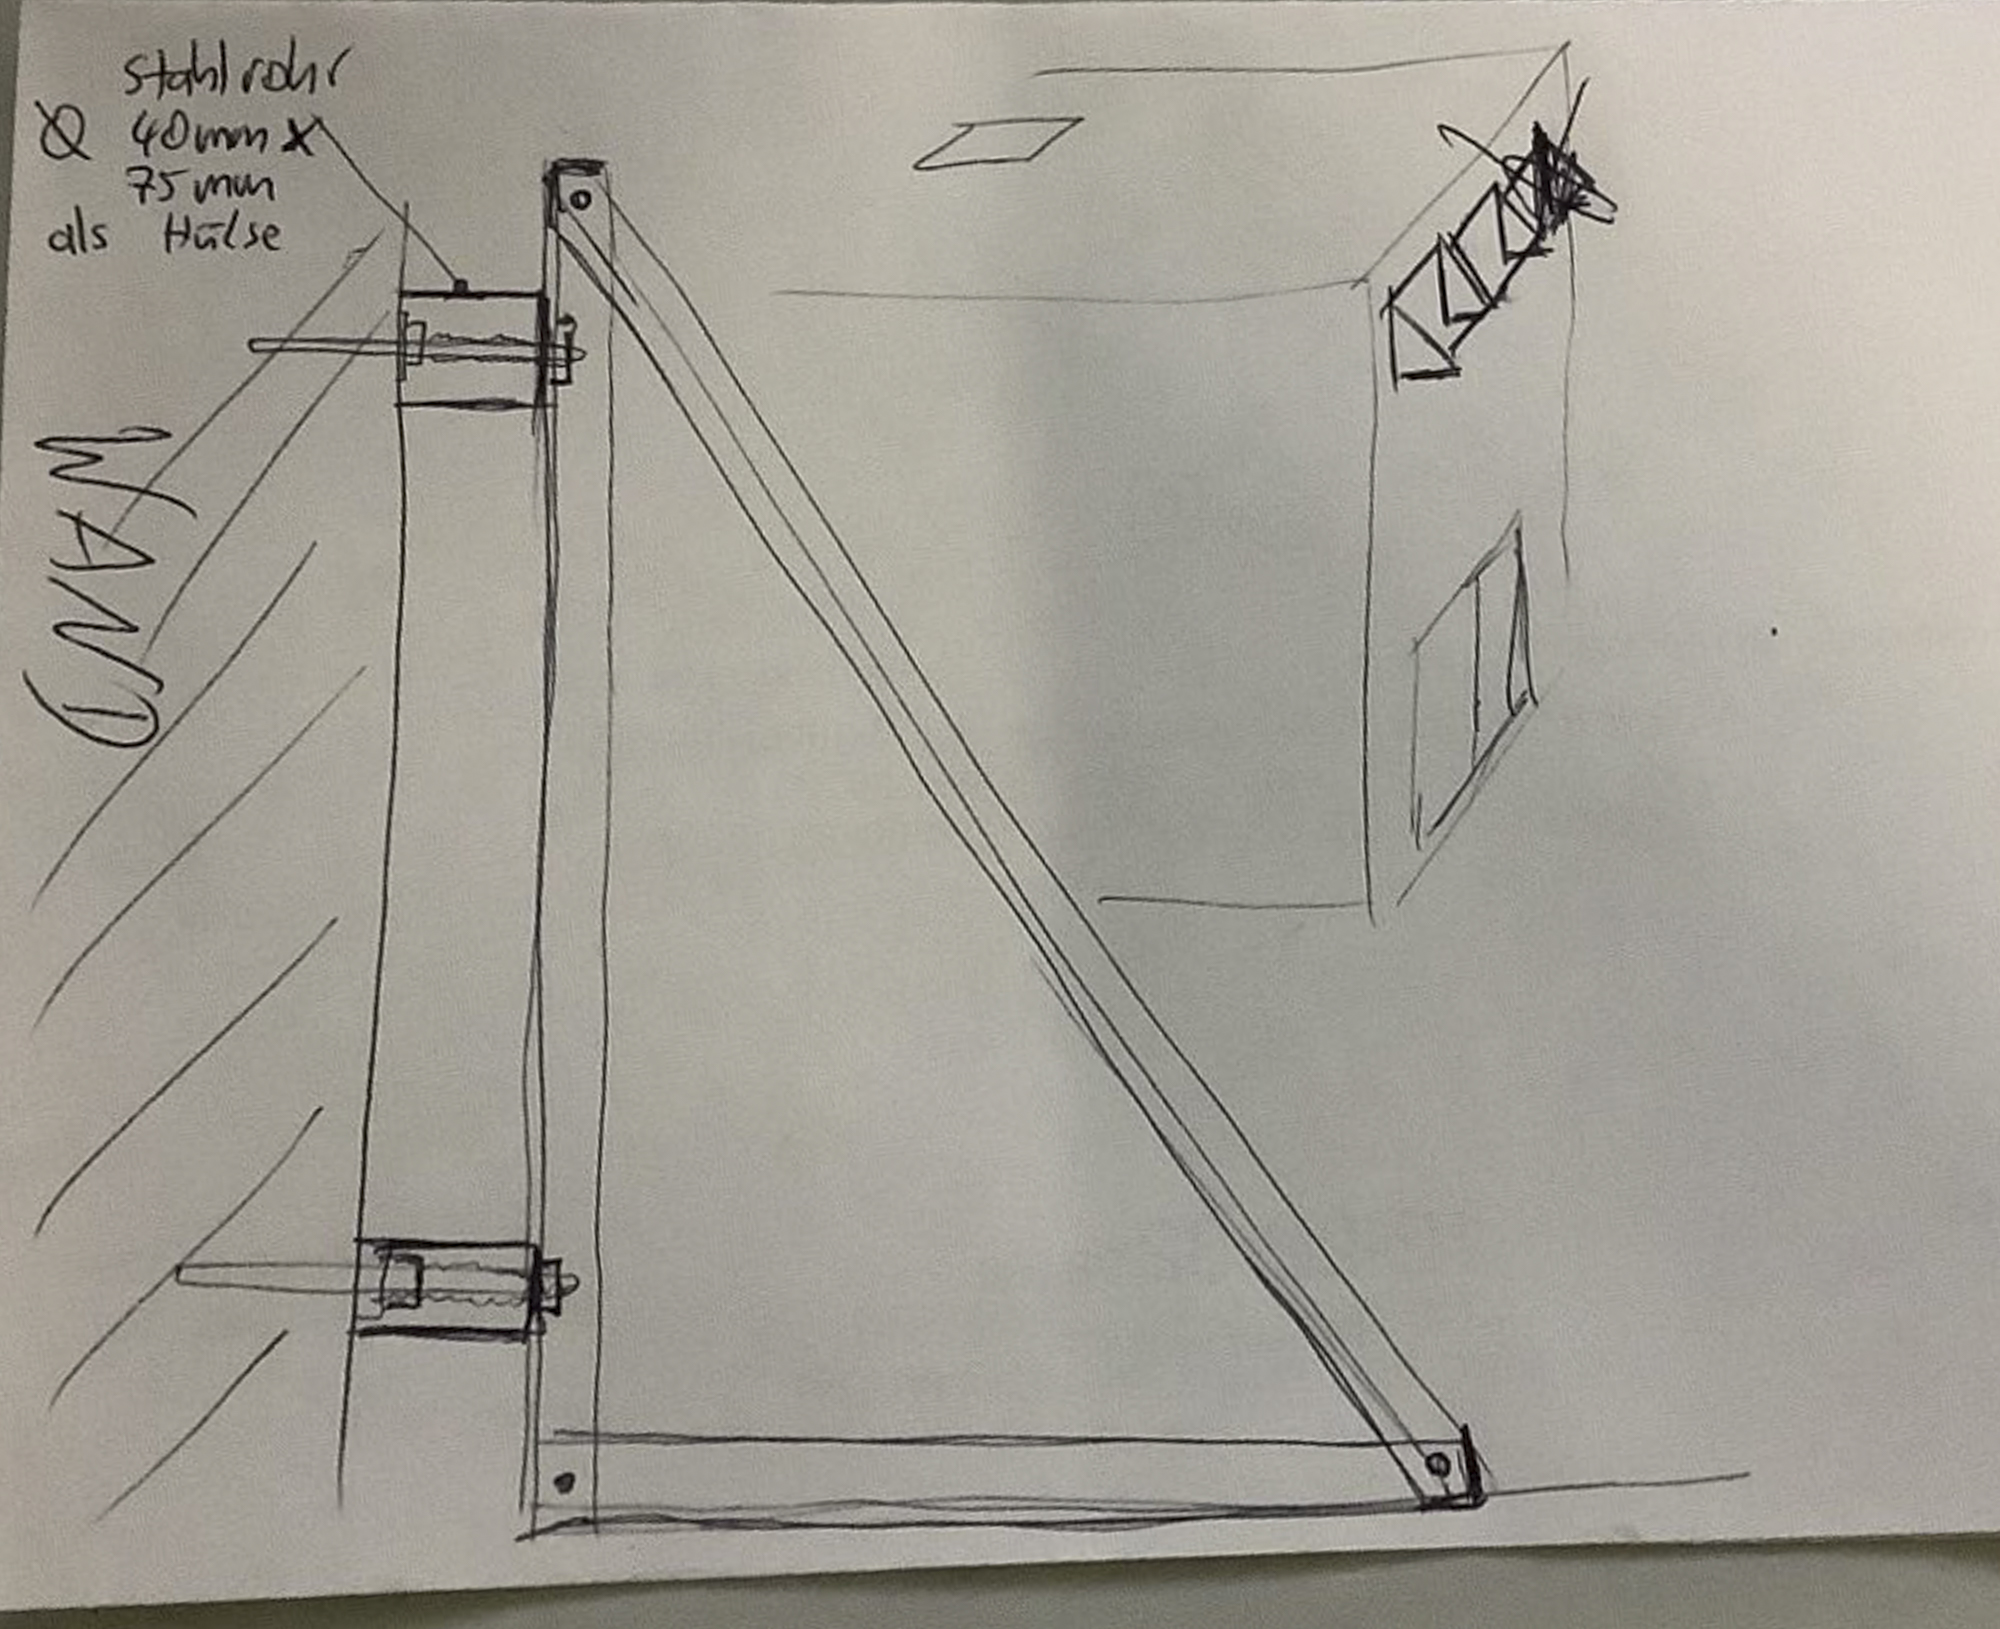 Stahlrohr
Ø 40mm x
75mm
als Hülse
WAND